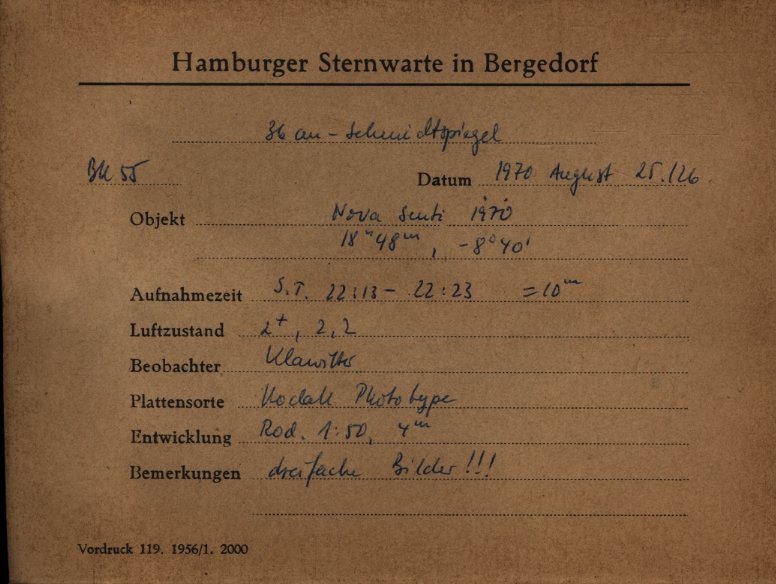 Hamburger Sternwarte in Bergedorf
36 cm-Schmidtspiegel
BK 55 Datum 1970 August 25./26.
Objekt Nova Scuti 1970
18ʰ48ᵐ, -8°40'
Aufnahmezeit S.T. 22:13 - 22:23 = 10ᵐ
Luftzustand 2⁺, 2, 2
Beobachter Klawitter
Plattensorte Kodak Phototype
Entwicklung Rod. 1:50, 4ᵐ
Bemerkungen dreifache Bilder!!!
Vordruck 119. 1956/1. 2000